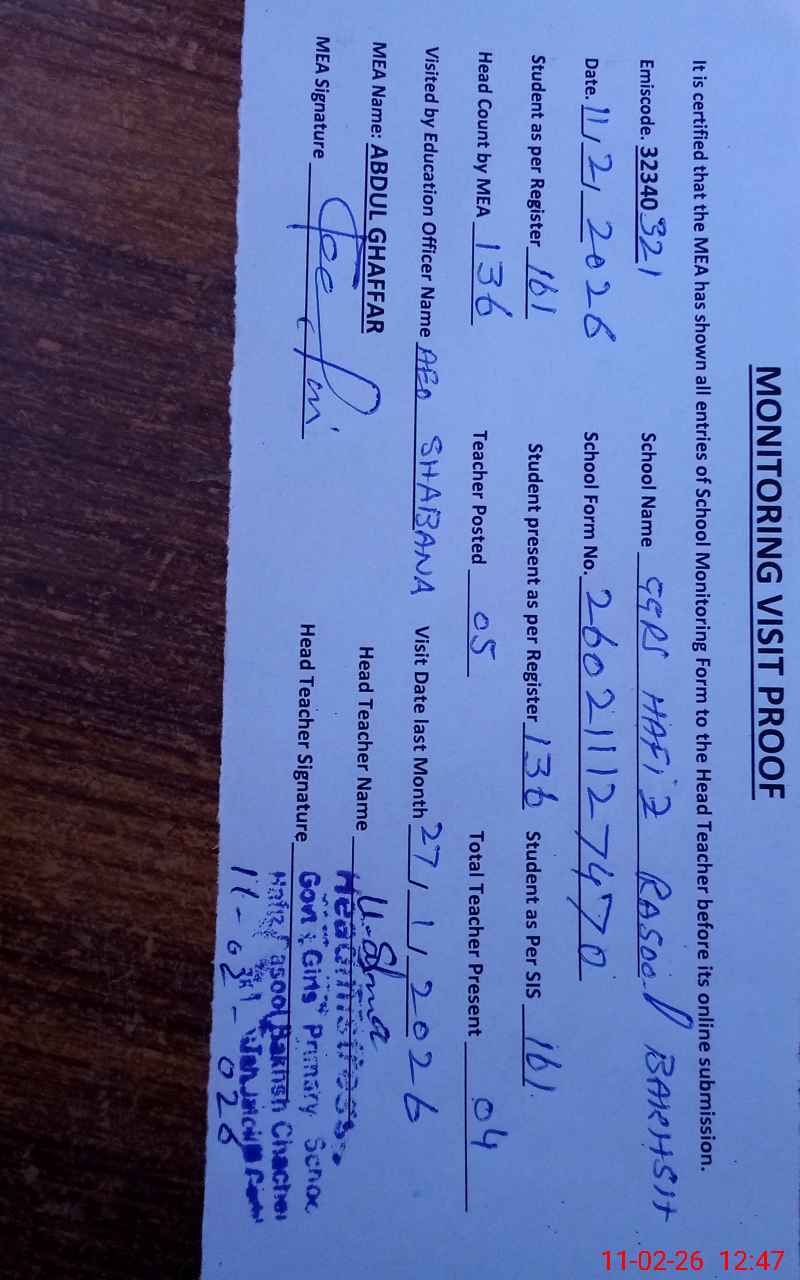 MONITORING VISIT PROOF
It is certified that the MEA has shown all entries of School Monitoring Form to the Head Teacher before its online submission.
Emiscode. 32340321 School Name GGPS HAFIZ RASOOL BAKHSH
Date. 11/2/2026 School Form No. 260211127470
Student as per Register 161 Student present as per Register 136 Student as Per SIS 161
Head Count by MEA 136 Teacher Posted 05 Total Teacher Present 04
Visited by Education Officer Name AEO SHABANA Visit Date last Month 27/1/2026
MEA Name: ABDUL GHAFFAR Head Teacher Name
MEA Signature Head Teacher Signature
Headmistress
Govt Girls Primary School
Hafiz Rasool Bakhsh Chacher
11-02-026
11-02-26 12:47